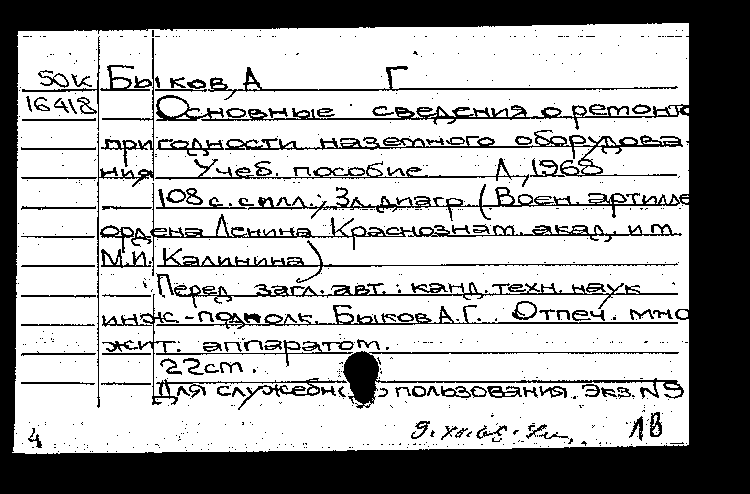 50к Быков, А Г
16418 Основные сведения о ремонто
пригодности наземного оборудова-
ния Учеб. пособие Л, 1968
108 с. с илл.; 3 л. диагр. (Воен. артилле
ордена Ленина Краснознам. акад. им.
М.И. Калинина)
Перед загл. авт.: канд. техн. наук
инж.-подполк. Быков А.Г. Отпеч. мно
жит. аппаратом.
22 см.
Для служебного пользования. Экз. N 9
4 18